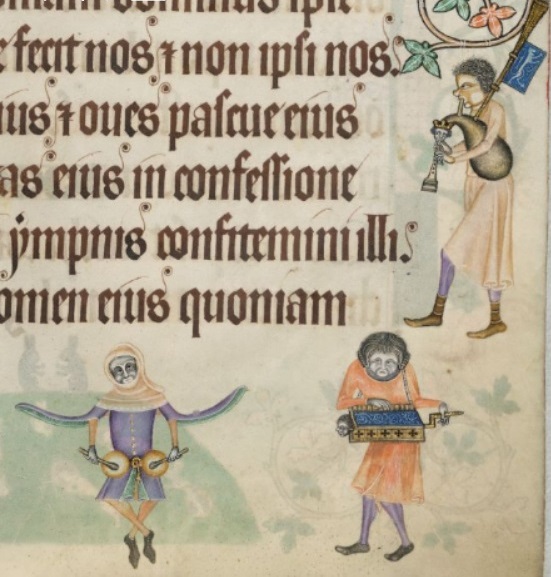 dominus ipse
e fecit nos ⁊ non ipsi nos.
uus ⁊ oues pascue eius
as eius in confessione
ympnis confitemini illi.
omen eius quoniam